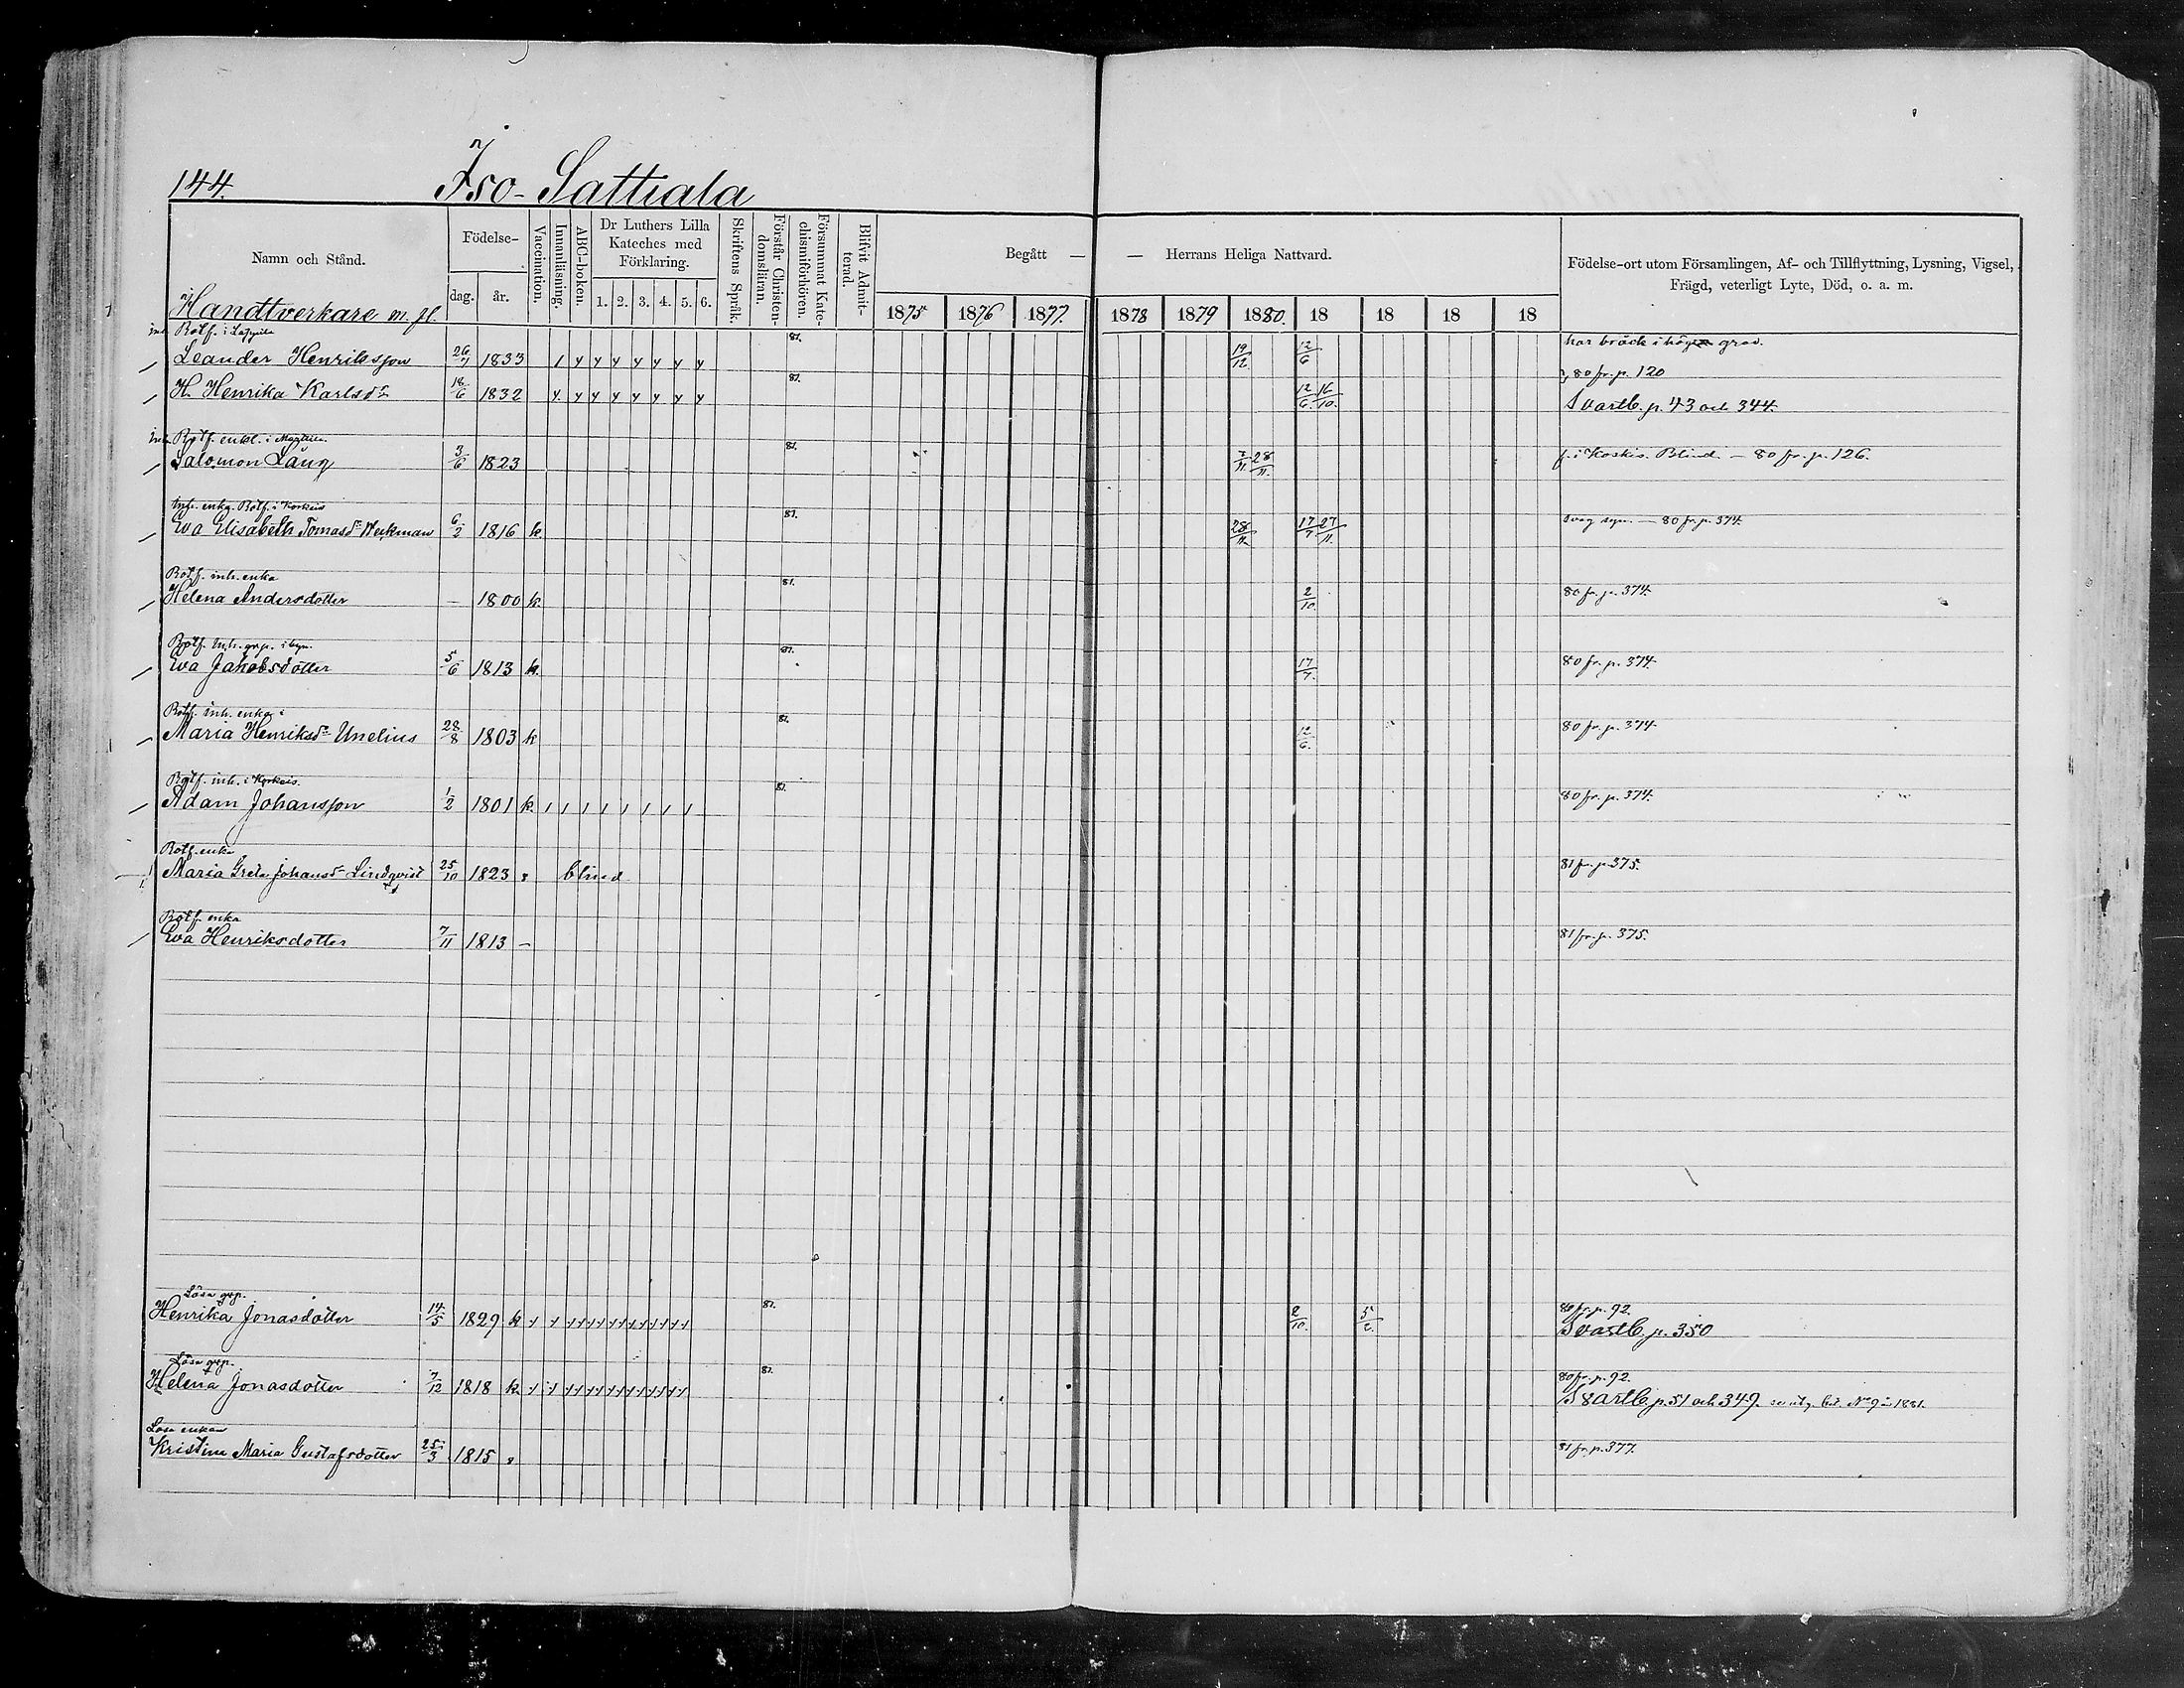 144. Iso-Sattiala
Namn och Stånd. Födelse- dag. år. Vaccination. Innanläsning. ABC-boken. Dr Luthers Lilla Kateches med Förklaring. 1. 2. 3. 4. 5. 6. Skriftens Språk. Förstår Christendomsläran. Försummat Katechismiförhören. Blifvit Admitterad. Begått — — Herrans Heliga Nattvard. Födelse-ort utom Församlingen, Af- och Tillflyttning, Lysning, Vigsel, Frägd, veterligt Lyte, Död, o. a. m.
1875 1876 1877. 1878 1879 1880. 18 18 18 18
Handtverkare m. fl.
inh. Rotf. i
Leander Henriksson 26/7 1833 81. 19/12 12/6 har bråck i hög grad.
80 fr. p. 120
H. Henrika Karlsdr 18/6 1832 81. 12/6. 16/10. Svartb. p. 43 och 344.
inh. Rotf. enkl. i
Salomon Lång 3/6 1823 81. 7/11. 28/11. f. i Koskis. Blind. — 80 fr. p. 126.
Inh. enka. Rotf. i Korkeis
Eva Elisabeth Tomasdr Weckman 6/2 1816 k. 81. 28/11. 17/7 27/11. svag syn. — 80 fr. p. 374.
Rotf. inh. enka
Helena Andersdotter — 1800 k. 81. 2/10. 80 fr. p. 374.
Rotf. inh. qvp. i byn.
Eva Jakobsdotter 5/6 1813 k. 81. 17/7. 80 fr. p. 374.
Rotf. inh. enka i
Maria Henriksdr Unelius 28/8 1803 k 81. 12/6. 80 fr. p. 374.
Rotf. inh. i Korkeis.
Adam Johansson 1/2 1801 k. 81. 80 fr. p. 374.
Rotf. enka
Maria Greta Johansdr Lindqvist 25/10 1823 blind 81 fr. p. 375.
Rotf. enka
Eva Henriksdotter 7/11 1813 — 81 fr. p. 375.
Lösa qvp.
Henrika Jonasdotter 14/5 1829 k 81. 2/10. 5/2. 80 fr. p. 92.
Svartb. p. 350
Lösa qvp.
Helena Jonasdotter 7/12 1818 k 81. 80 fr. p. 92.
Svartb. p. 51 och 349. se utg. bet. No 9 1881.
Lösa enkan
Kristina Maria Gustafsdotter 25/3 1815 81 fr. p. 377.